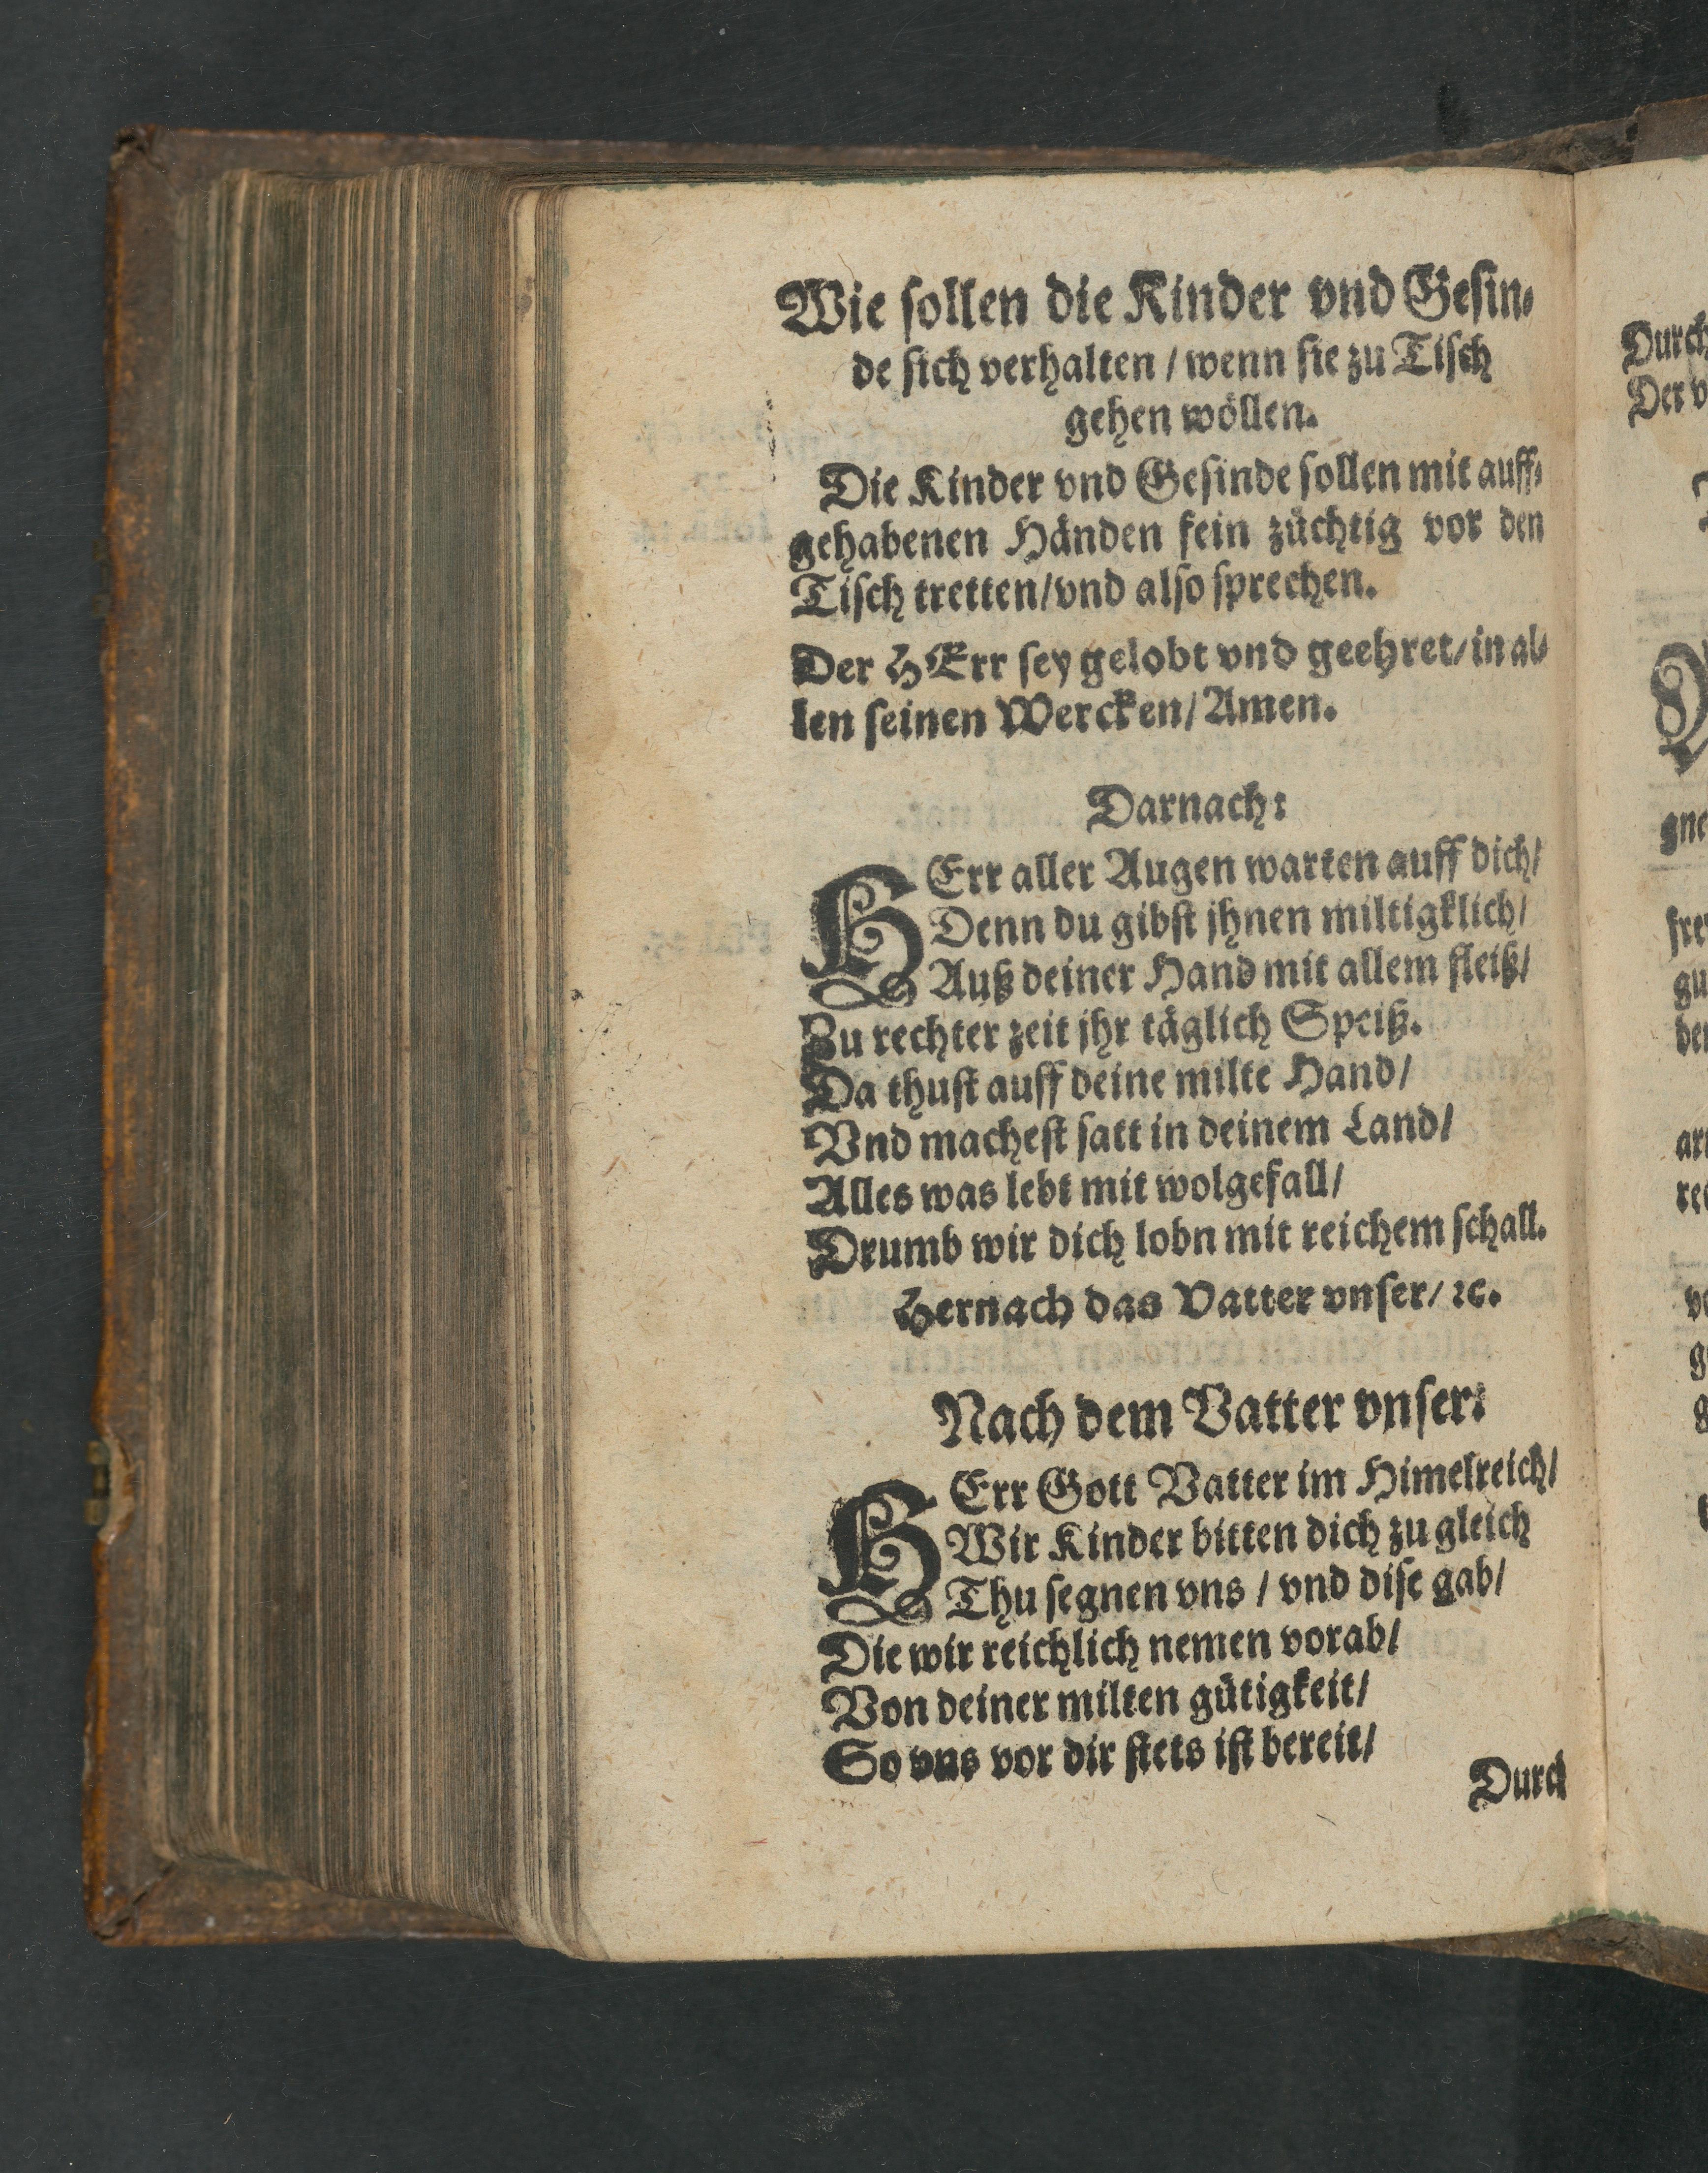 Wie sollen die Kinder vnd Gesin-
de sich verhalten / wenn sie zu Tisch
gehen wöllen.
Die Kinder vnd Gesinde sollen mit auff-
gehabenen Händen fein züchtig vor den
Tisch tretten/vnd also sprechen.
Der HErr sey gelobt vnd geehret/in al-
len seinen Wercken/Amen.
Darnach:
HErr aller Augen warten auff dich/
Denn du gibst jhnen miltigklich/
Auß deiner Hand mit allem fleiß/
Zu rechter zeit jhr täglich Speiß.
Da thust auff deine milte Hand/
Vnd machest satt in deinem Land/
Alles was lebt mit wolgefall/
Drumb wir dich lobn mit reichem schall.
Hernach das Vatter vnser/ ꝛc.
Nach dem Vatter vnser:
HErr Gott Vatter im Himelreich/
Wir Kinder bitten dich zu gleich
Thu segnen vns / vnd dise gab/
Die wir reichlich nemen vorab/
Von deiner milten gütigkeit/
So vns vor dir stets ist bereit/
Durch
Durch
Der v
gne
fre
gu